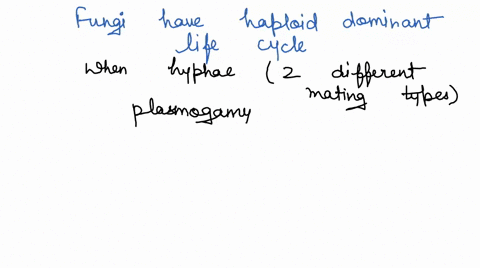 Fungi have haploid dominant
life cycle
when hyphae (2 different
mating types)
plasmogamy